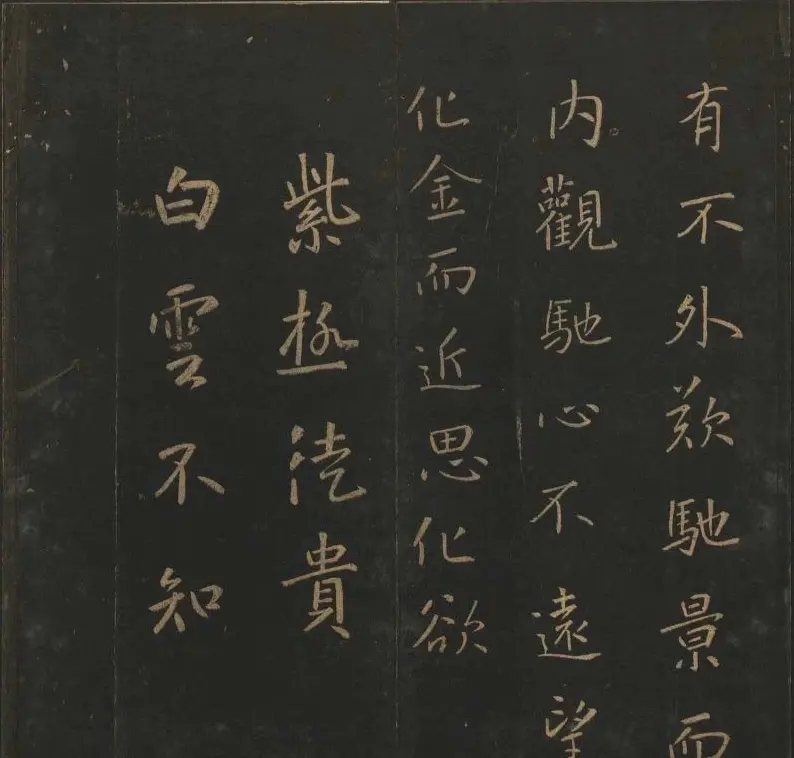 有不外欻馳景而
內觀馳心不遠望
化金而近思化欲
紫極徒貴
白雲不知